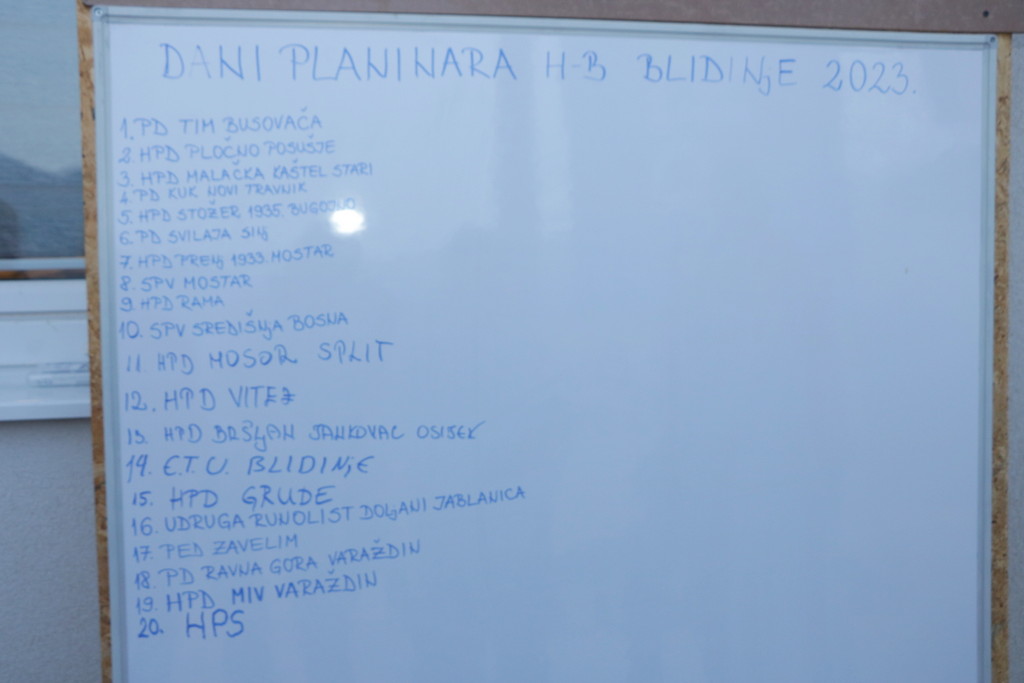 DANI PLANINARA H-B BLIDINJE 2023.
1. PD TIM BUSOVAČA
2. HPD PLOČNO POSUŠJE
3. HPD MALAČKA KAŠTEL STARI
4. PD KUK NOVI TRAVNIK
5. HPD STOŽER 1935. BUGOJNO
6. PD SVILAJA SINJ
7. HPD PRENJ 1933. MOSTAR
8. SPV MOSTAR
9. HPD RAMA
10. SPV SREDIŠNJA BOSNA
11. HPD MOSOR SPLIT
12. HPD VITEZ
13. HPD BRŠLJAN JANKOVAC OSIJEK
14. E.T.U. BLIDINJE
15. HPD GRUDE
16. UDRUGA RUNOLIST DOLJANI JABLANICA
17. PED ZAVELIM
18. PD RAVNA GORA VARAŽDIN
19. HPD MIV VARAŽDIN
20. HPS